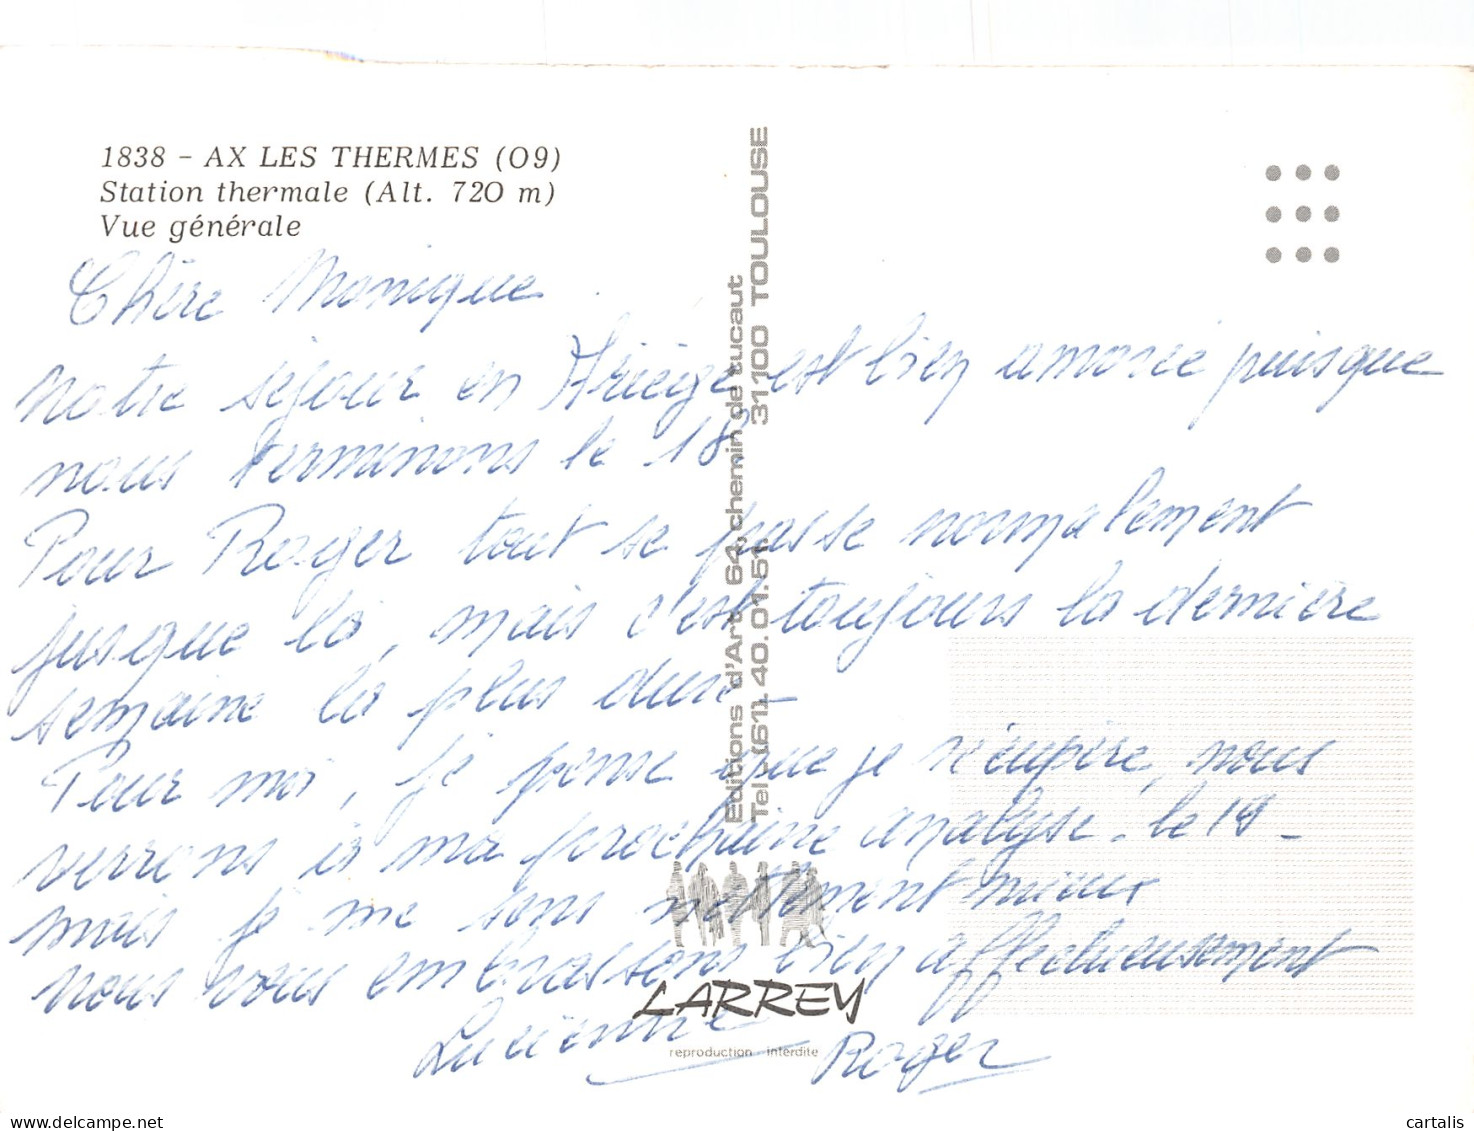 1838 - AX LES THERMES (09)
Station thermale (Alt. 720 m)
Vue générale
Chère Monique
notre séjour en Ariège est bien amorcé puisque
nous terminons le 18.
Pour Roger tout se passe normalement
jusque là, mais c'est toujours la dernière
semaine la plus dure_
Pour moi, je pense que je récupère, nous
verrons à ma prochaine analyse. le 19_
mais je me sens nettement mieux
nous vous embrassons bien affectueusement
Lucienne Roger
Editions d'Art 64, chemin de tucaut
Tel-(61) 40.01.51. 31100 TOULOUSE
LARREY
reproduction interdite
cartalis